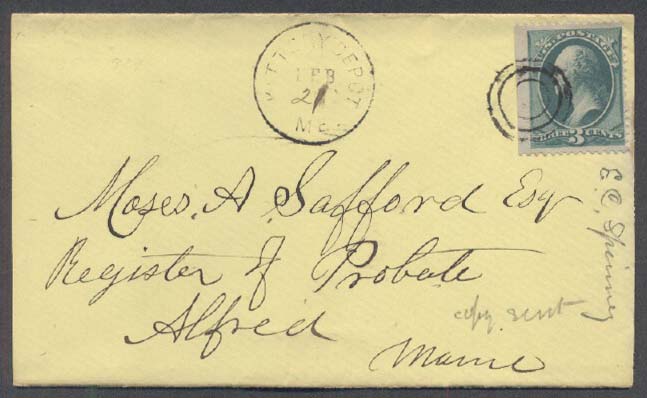 KITTERY DEPOT
FEB
ME.
U.S. POSTAGE
THREE 3 CENTS
Moses. A. Safford Esq
Register of Probate
Alfred
Maine
copy sent
E. C. Spinney